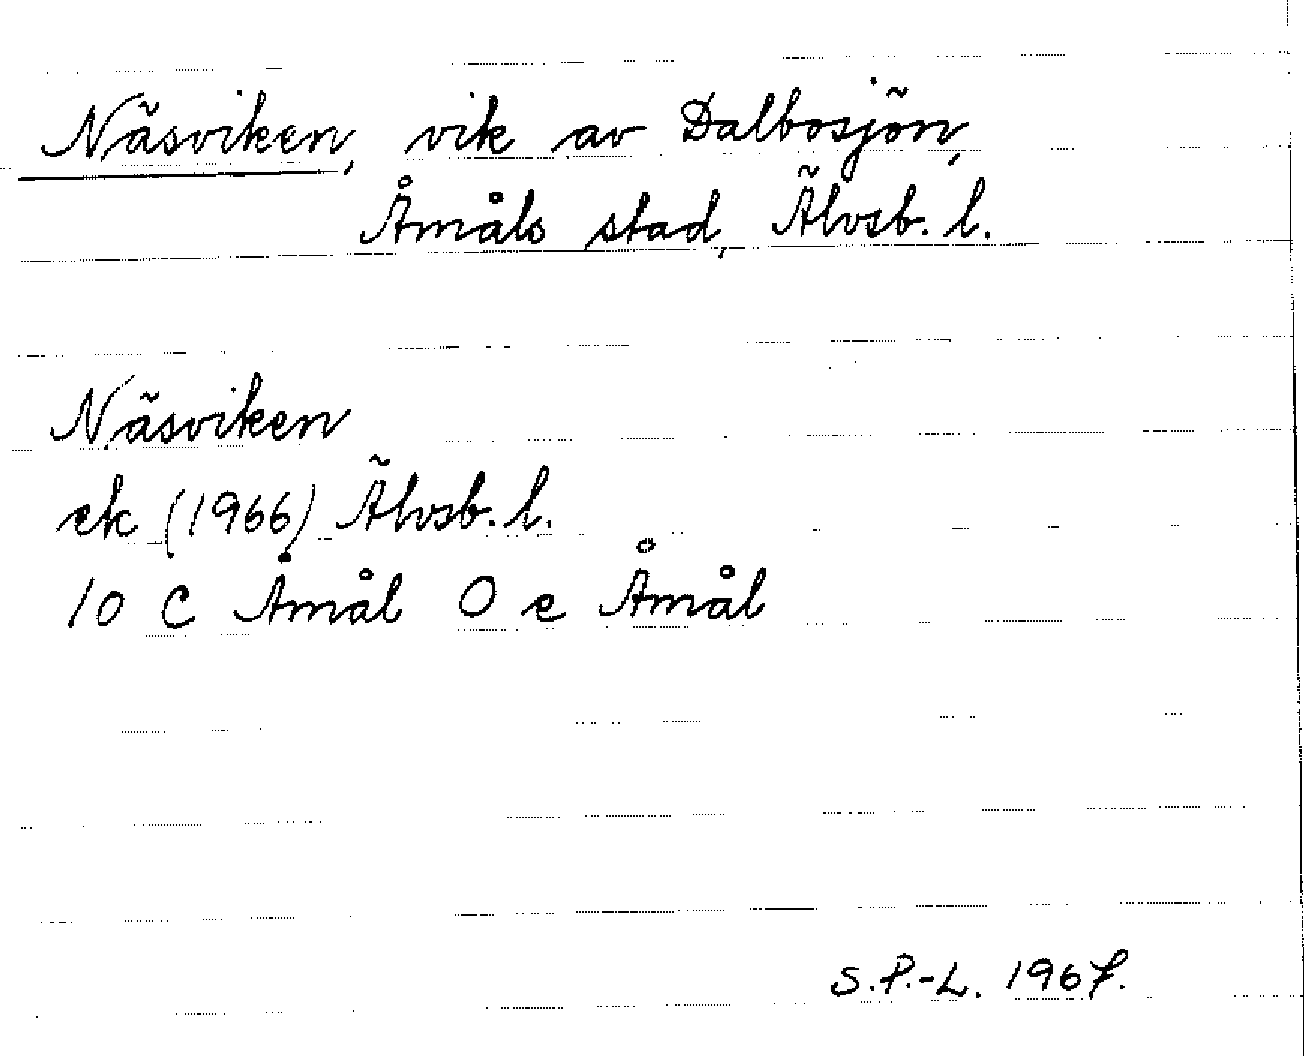 Näsviken, vik av Dalbosjön,
Åmåls stad, Älvsb. l.
Näsviken
ek (1966) Älvsb. l.
10 C Åmål O e Åmål
S.P.-L. 1967.